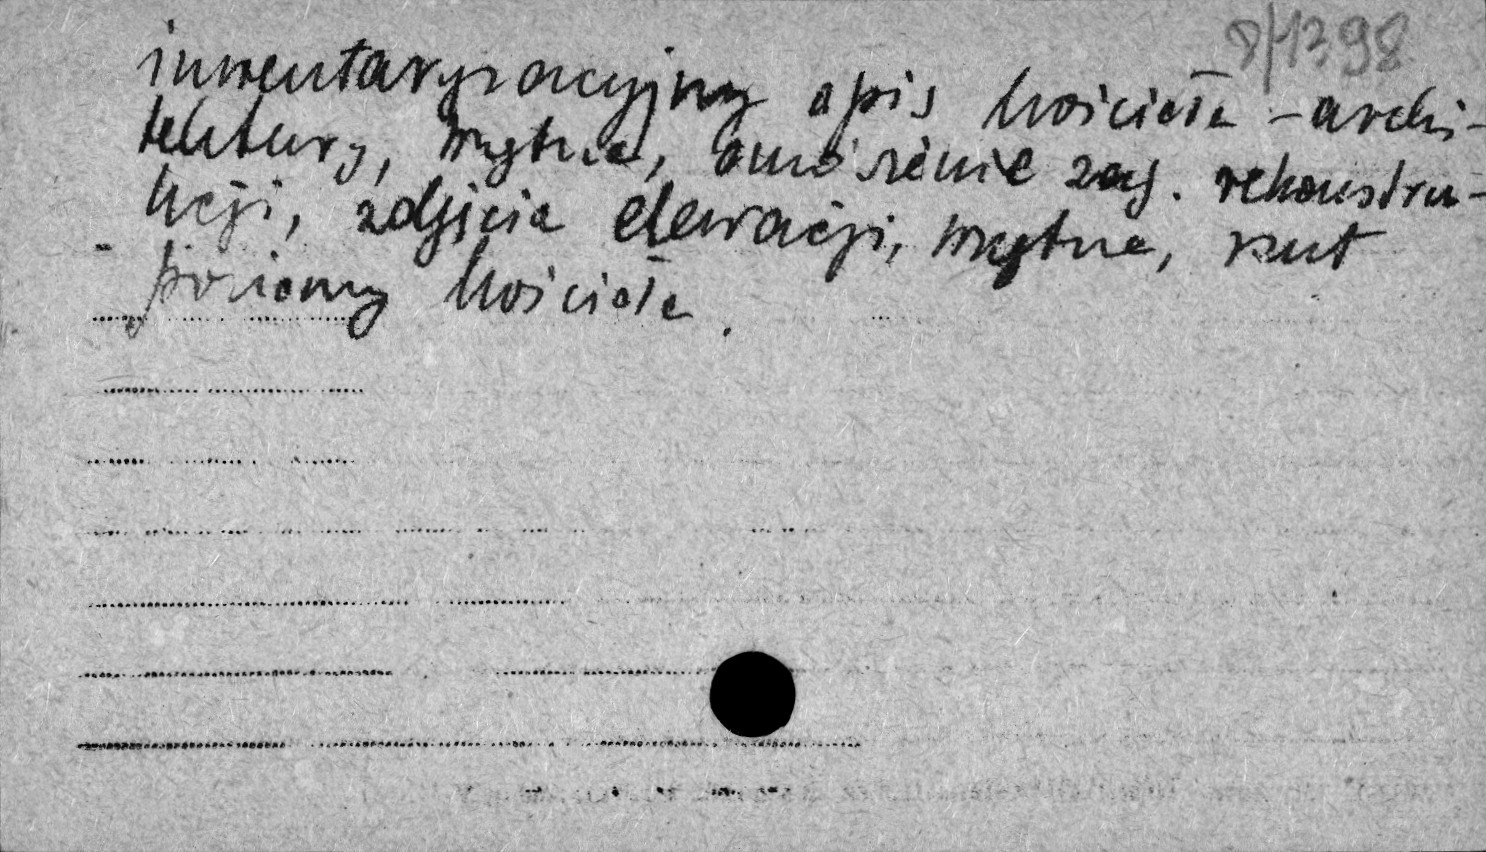 8/1398
inwentaryzacyjny opis kościoła - archi-
tektury, wnętrza, omówienie zag. rekonstru-
kcji, zdjęcia elewacji, wnętrza, rzut
poziomy kościoła.